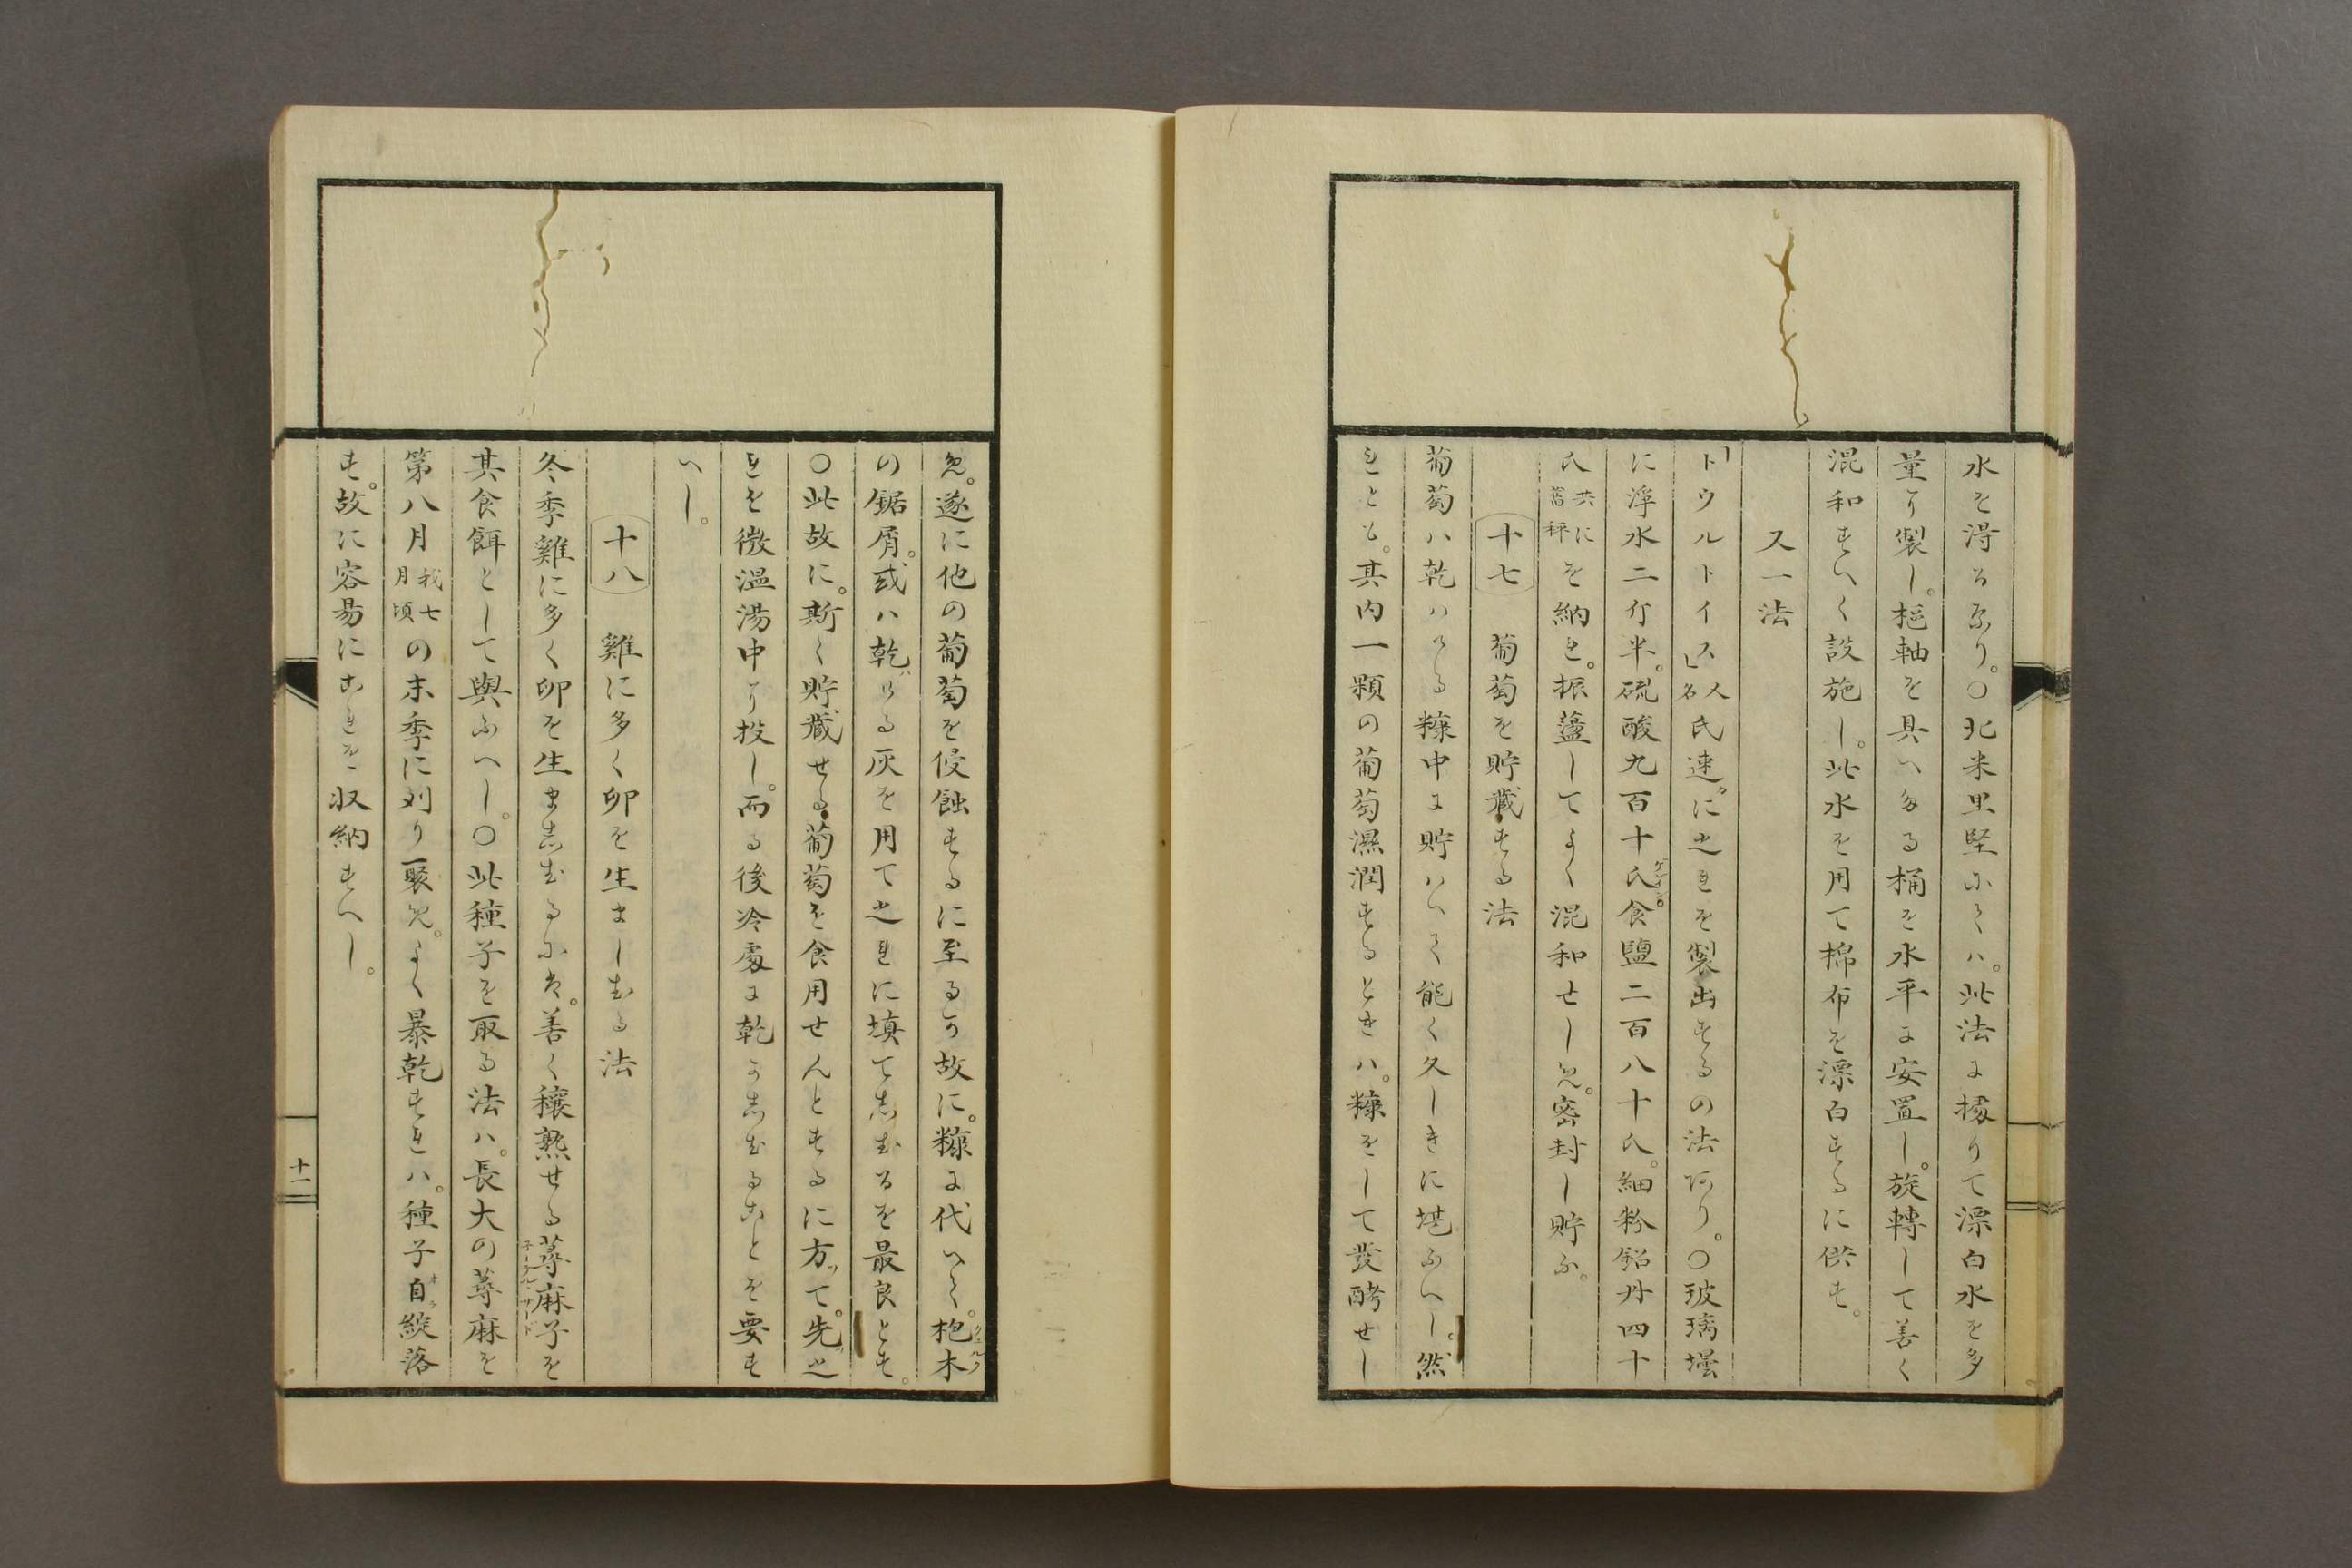 水を得るなり。○北米里堅にては。此法に據りて漂白水を多
量に製し。樞軸を具へたる桶を水平に安置し。旋轉して善く
混和すへく設施し。此水を用て棉布を漂白するに供す。
又一法
「トウルトイス」人名氏速かに之れを製出するの法あり。○玻璃壜
に淨水二斤半。硫酸九百十氏ゲレイン。食鹽二百八十氏。細粉鉛丹四十
氏共に舊秤を納れ。振蘯してよく混和せしめ。密封し貯ふ。
十七 葡萄を貯藏する法
葡萄ハ乾ける糠中に貯ハへて能く久しきに堪ふへし。然
れとも。其内一顆の葡萄濕潤するときハ。糠をして發酵せし
め。遂に他の葡萄を侵蝕するに至るか故に。糠に代へて。枹木クエルク
の鋸屑。或ハ乾ける灰を用て之れに填てしむるを最良とす。
○此故に。斯く貯藏せる葡萄を食用せんとするに方て。先之
れを微温湯中に投し。而る後冷處に乾かしむることを要す
へし。
十八 雞に多く卵を生ましむる法
冬季雞に多く卵を生ましむるにハ。善く穰熟せる蕁麻子を
其食餌として與ふへし。○此種子を取る法ハ。長大の蕁麻を
第八月我七月頃の末季に刈り聚め。よく暴乾すれハ。種子自綻落
す。故に容易にこれを収納すへし。
十一